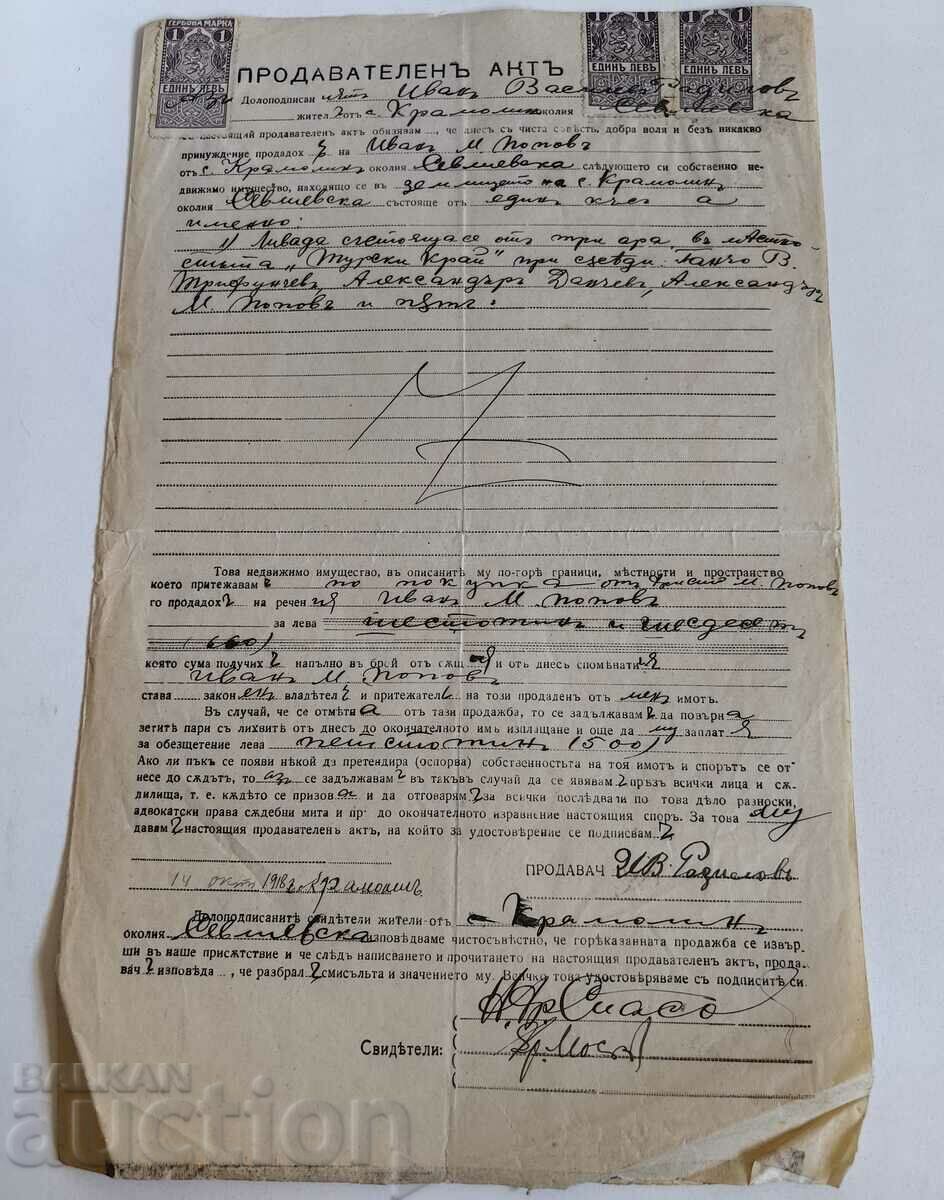 ГЕРБОВА МАРКА
1 1 1 1 1 1
ЕДИНЪ ЛЕВЪ ЕДИНЪ ЛЕВЪ ЕДИНЪ ЛЕВЪ
ПРОДАВАТЕЛЕНЪ АКТЪ
Долоподписани Иванъ Радиловъ
жител отъ с. Крамолинъ околия Севлиевска
настоящий продавателен актъ обявявам , че днесъ с чиста совѣсть, добра воля и безъ никакво
принуждение продадох ъ на Иванъ М. Поповъ
отъ с. Крамолинъ околия Севлиевска слѣдующето си собственно не-
движимо имущество, находящо се въ землището на с. Крамолинъ
околия Севлиевска состояще отъ единъ къс а
именно:
1) Ливада състояща се отъ три ара, въ мѣстно-
стьта „Турски Край" при съседи: Ганчо В.
Трифунчевъ, Александъръ Данчевъ, Александъръ
М. Поповъ и пѫть.
Това недвижимо имущество, въ описанитѣ му по-горѣ граници, мѣстности и пространство
което притежавам ъ по покупка отъ М. Поповъ
го продадохъ на речен ия Иванъ М. Поповъ
за лева шестотинъ и шесдесетъ
(660)
която сума получих ъ напълно въ брой отъ сѫщия и отъ днесъ споменатия
Иванъ М. Поповъ
става законенъ владѣтелъ и притежатель на този продаленъ отъ менъ имотъ.
Въ случай, че се отмѣтна отъ тази продажба, то се задължавамъ да повърна
зетитѣ пари съ лихвитѣ отъ днесъ до окончателното имъ изплащане и още да му заплатя
за обезщетение лева петстотинъ (500)
Ако ли пъкъ се появи нѣкой да претендира (оспорва) собственостьта на тоя имотъ и спорътъ се от-
несе до сѫдътъ, то азъ се задължавамъ въ такъвъ случай да се явявамъ прѣзъ всички лица и сѫ-
дилища, т. е. кѫдѣто се призова и да отговарямъ за всички послѣдвали по това дѣло разноски,
адвокатски права сѫдебни мита и пр. до окончателното изравнение настоящия споръ. За това му
давамъ настоящия продавателенъ актъ, на който за удостовѣрение се подписвамъ
ПРОДАВАЧ Ив. Радиловъ
14 окт 1918 г. с. Крамолинъ
Долоподписанитѣ свидѣтели жители отъ с. Крамолинъ
околия Севлиевска изповѣдваме чистосъвѣстно, че горѣказанната продажба се извър-
ши въ наше присѫтствие и че слѣдъ написването и прочитането на настоящия продавателенъ актъ, прода-
вачъ изповѣда , че разбралъ смисъльта и значението му. Всичко това удостовѣряваме съ подписитѣ си.
Свидѣтели:
BALKAN
auction